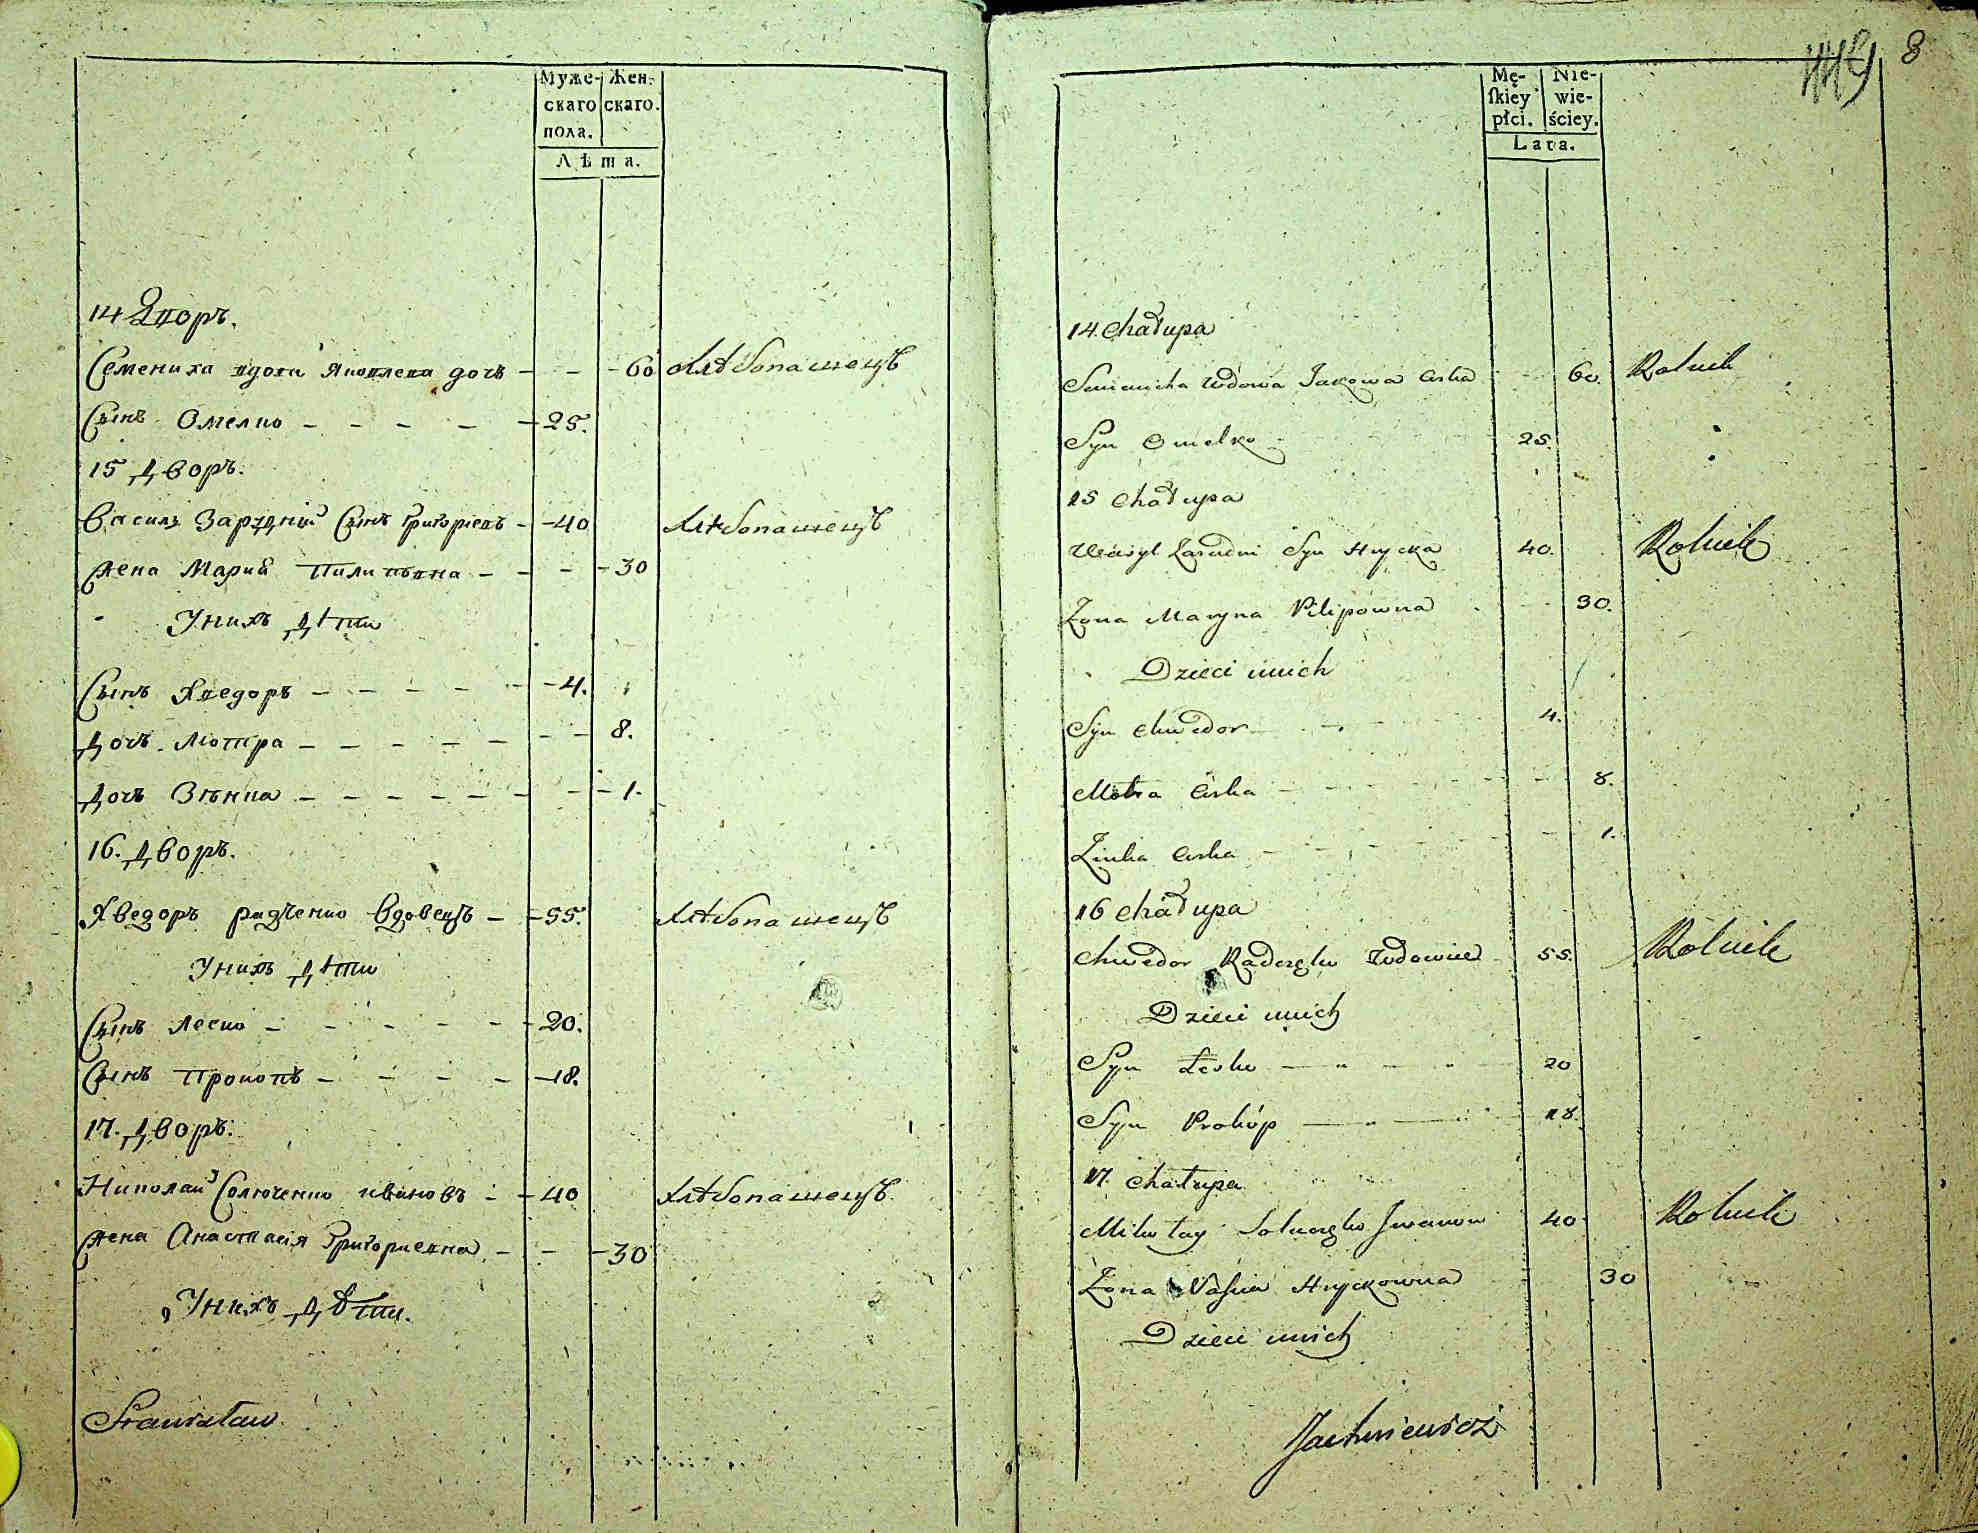 Муже- Жен-
скаго скаго.
пола.
Лѣта.
14 Дворъ.
Семениха вдова Яковлева дочь - - - 60 Хлѣбопашецъ
Сынъ Омелко - - - - - 25.
15 Дворъ.
Василь Зарудній Сынъ Григоріевъ - - 40 Хлѣбопашецъ
Жена Мария Пилиповна - - - - 30
У нихъ дѣти
Сынъ Хведоръ - - - - - - 4.
Дочь Мотра - - - - - - - 8.
Дочь Зѣнка - - - - - - - - 1.
16. Дворъ.
Хведоръ Радченко Вдовецъ - - 55. Хлѣбопашецъ
У нихъ дѣти
Сынъ Леско - - - - - - 20.
Сынъ Прокопъ - - - - - 18.
17. Дворъ.
Николай Солюченко Ивановъ - - 40 Хлѣбопашецъ
Жена Анастасія Григориевна - - - 30
У нихъ дѣти.
Stanisław
8
Mę- Nie-
ſkiey wie-
płci. ściey.
Lata.
14. Chałupa
Semenicha Wdowa Jakowa Corka 60. Rolnik
Syn Omelko 25.
15 Chałupa
Wasyl Zarudni Syn Hrycka 40. Rolnik
Żona Maryna Pilipowna 30.
Dzieci unich
Syn Chwedor 4.
Motra Corka 8.
Zinka Corka 1.
16 Chałupa
Chwedor Radczęko Wdowiec 55. Rolnik
Dzieci unich
Syn Leśko 20
Syn Prokóp 18.
17. Chałupa
Mikołay Soluczęko Jwanow 40 Rolnik
Żona Nastia Hryckowna 30
Dzieci unich
Jachniewicz